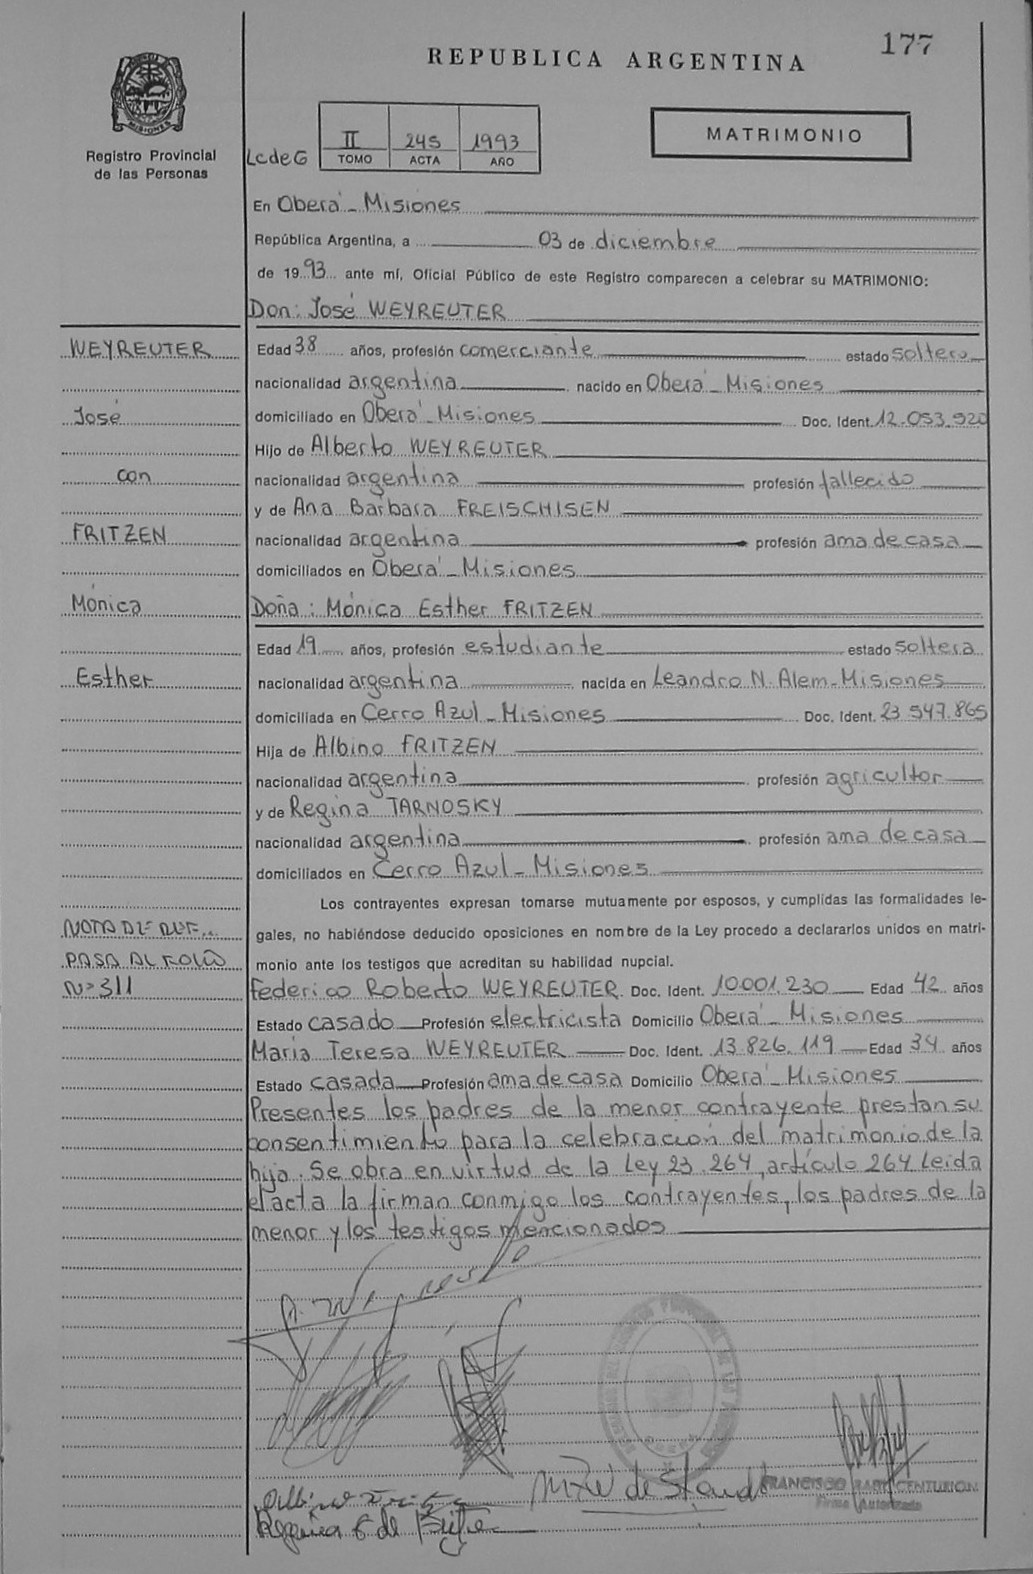 177
REPUBLICA ARGENTINA
MISIONES
Registro Provincial
de las Personas
LcdeG
II 245 1993
TOMO ACTA AÑO
MATRIMONIO
En Oberá - Misiones
República Argentina, a 03 de diciembre
de 1993 ante mí, Oficial Público de este Registro comparecen a celebrar su MATRIMONIO:
Don: José WEYREUTER
WEYREUTER
José
con
FRITZEN
Mónica
Esther
Edad 38 años, profesión comerciante estado soltero
nacionalidad argentina nacido en Oberá - Misiones
domiciliado en Oberá - Misiones Doc. Ident. 12.053.920
Hijo de Alberto WEYREUTER
nacionalidad argentina profesión fallecido
y de Ana Bárbara FREISCHISEN
nacionalidad argentina profesión ama de casa
domiciliados en Oberá - Misiones
Doña: Mónica Esther FRITZEN
Edad 19 años, profesión estudiante estado soltera
nacionalidad argentina nacida en Leandro N. Alem - Misiones
domiciliada en Cerro Azul - Misiones Doc. Ident. 23.547.865
Hija de Albino FRITZEN
nacionalidad argentina profesión agricultor
y de Regina TARNOSKY
nacionalidad argentina profesión ama de casa
domiciliados en Cerro Azul - Misiones
Los contrayentes expresan tomarse mutuamente por esposos, y cumplidas las formalidades le-
gales, no habiéndose deducido oposiciones en nombre de la Ley procedo a declararlos unidos en matri-
monio ante los testigos que acreditan su habilidad nupcial.
NOTA DE REF...
PASA AL FOLIO
Nº 311
Federico Roberto WEYREUTER Doc. Ident. 10.001.230 Edad 42 años
Estado casado Profesión electricista Domicilio Oberá - Misiones
María Teresa WEYREUTER Doc. Ident. 13.826.119 Edad 34 años
Estado casada Profesión ama de casa Domicilio Oberá - Misiones
Presentes los padres de la menor contrayente prestan su
consentimiento para la celebración del matrimonio de la
hija. Se obra en virtud de la Ley 23.264, artículo 264 Leída
el acta la firman conmigo los contrayentes, los padres de la
menor y los testigos mencionados
FRANCISCO CENTURION
Firma Autorizada